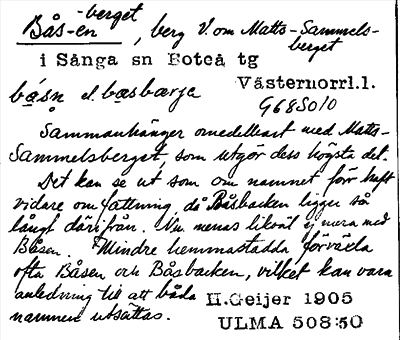 -berget
Bås-en, berg V. om Matts-Sammels-
berget
i Sånga sn Boteå tg
Västernorrl.l.
bå̀sn el. bæsbærje
G68S010
Sammanhänger omedelbart med Matts-
Sammelsberget, som utgör dess högsta del.
Det kan se ut som om namnet förr haft
vidare omfattning då Båsbacken ligger så
långt därifrån. Nu menas likväl ej mera med
Båsen. Mindre hemmastadda förväxla
ofta Båsen och Båsbacken, vilket kan vara
anledning till att båda
namnen utsättas.
H.Geijer 1905
ULMA 508:50